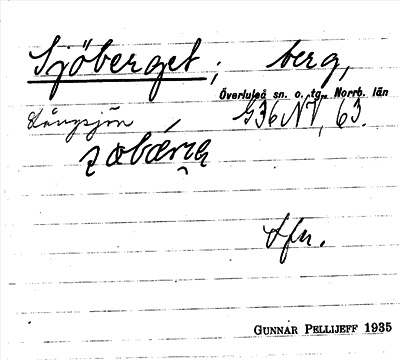 Sjöberget; berg,
Överluleå sn. o. tg. Norrb. län
Långsjön G36NV, 63.
Sfn.
GUNNAR PELLIJEFF 1935